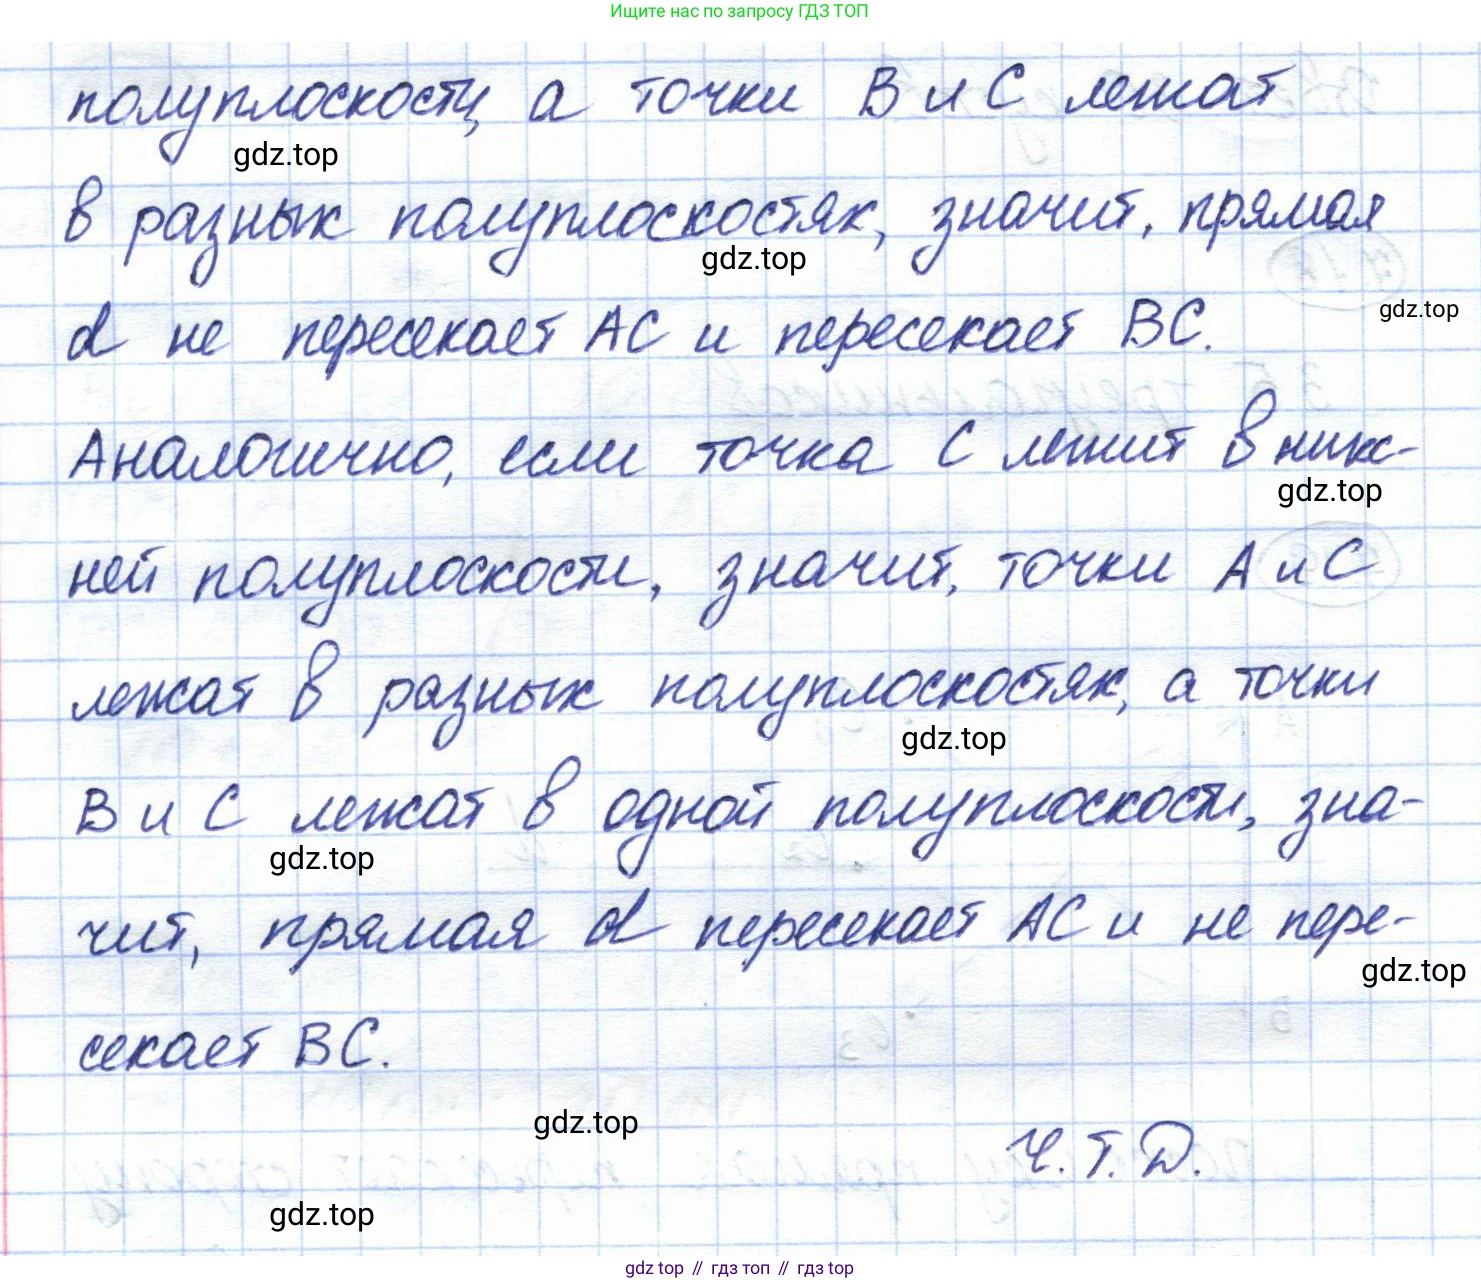 Ищите нас по запросу ГДЗ ТОП
полуплоскости, а точки В и С лежат
gdz.top
в разных полуплоскостях, значит, прямая
gdz.top
d не пересекает АС и пересекает ВС.
gdz.top
Аналогично, если точка С лежит в ниж-
gdz.top
ней полуплоскости, значит, точки А и С
лежат в разных полуплоскостях, а точки
gdz.top
В и С лежат в одной полуплоскости, зна-
gdz.top
чит, прямая d пересекает АС и не пере-
gdz.top
секает ВС.
gdz.top
Ч.Т.Д.
gdz.top
gdz top // гдз топ // гдз top